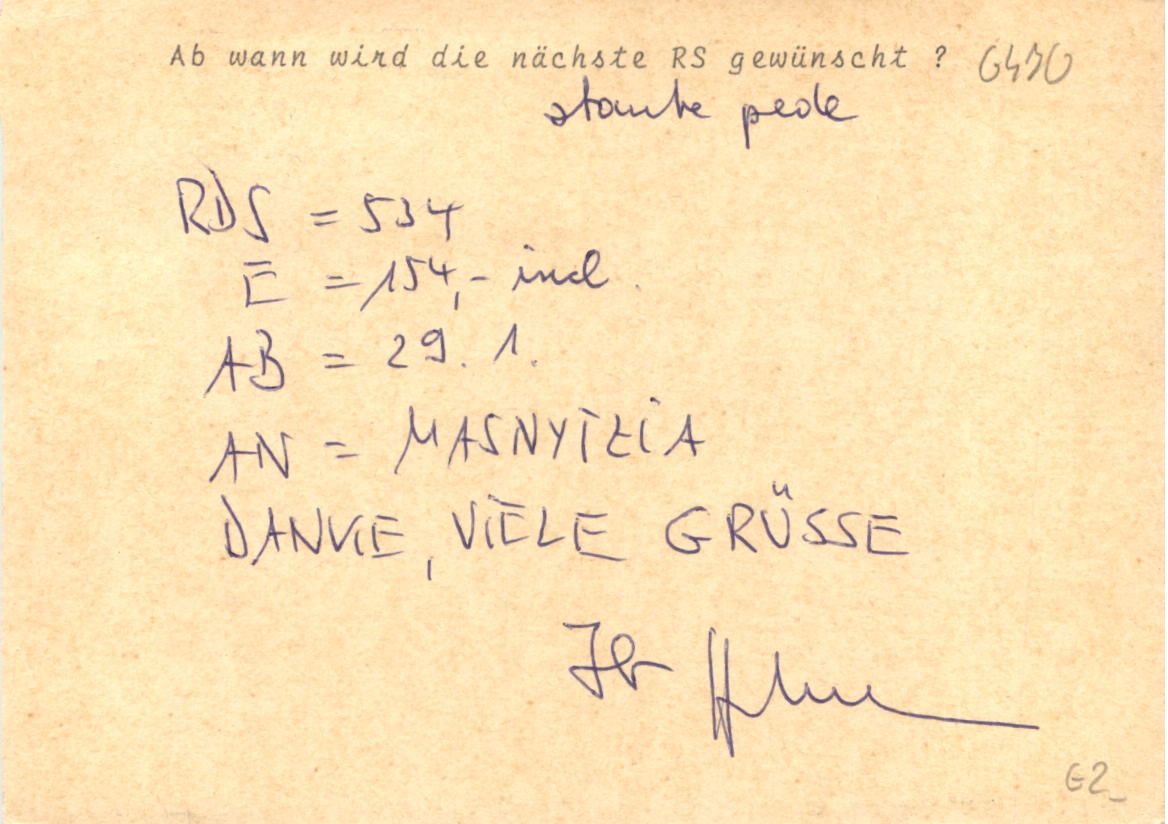 Ab wann wird die nächste RS gewünscht ?
stante pede
RDS = 534
E = 154,- incl.
AB = 29. 1.
AN =
DANKE, VIELE GRÜSSE
Ihr